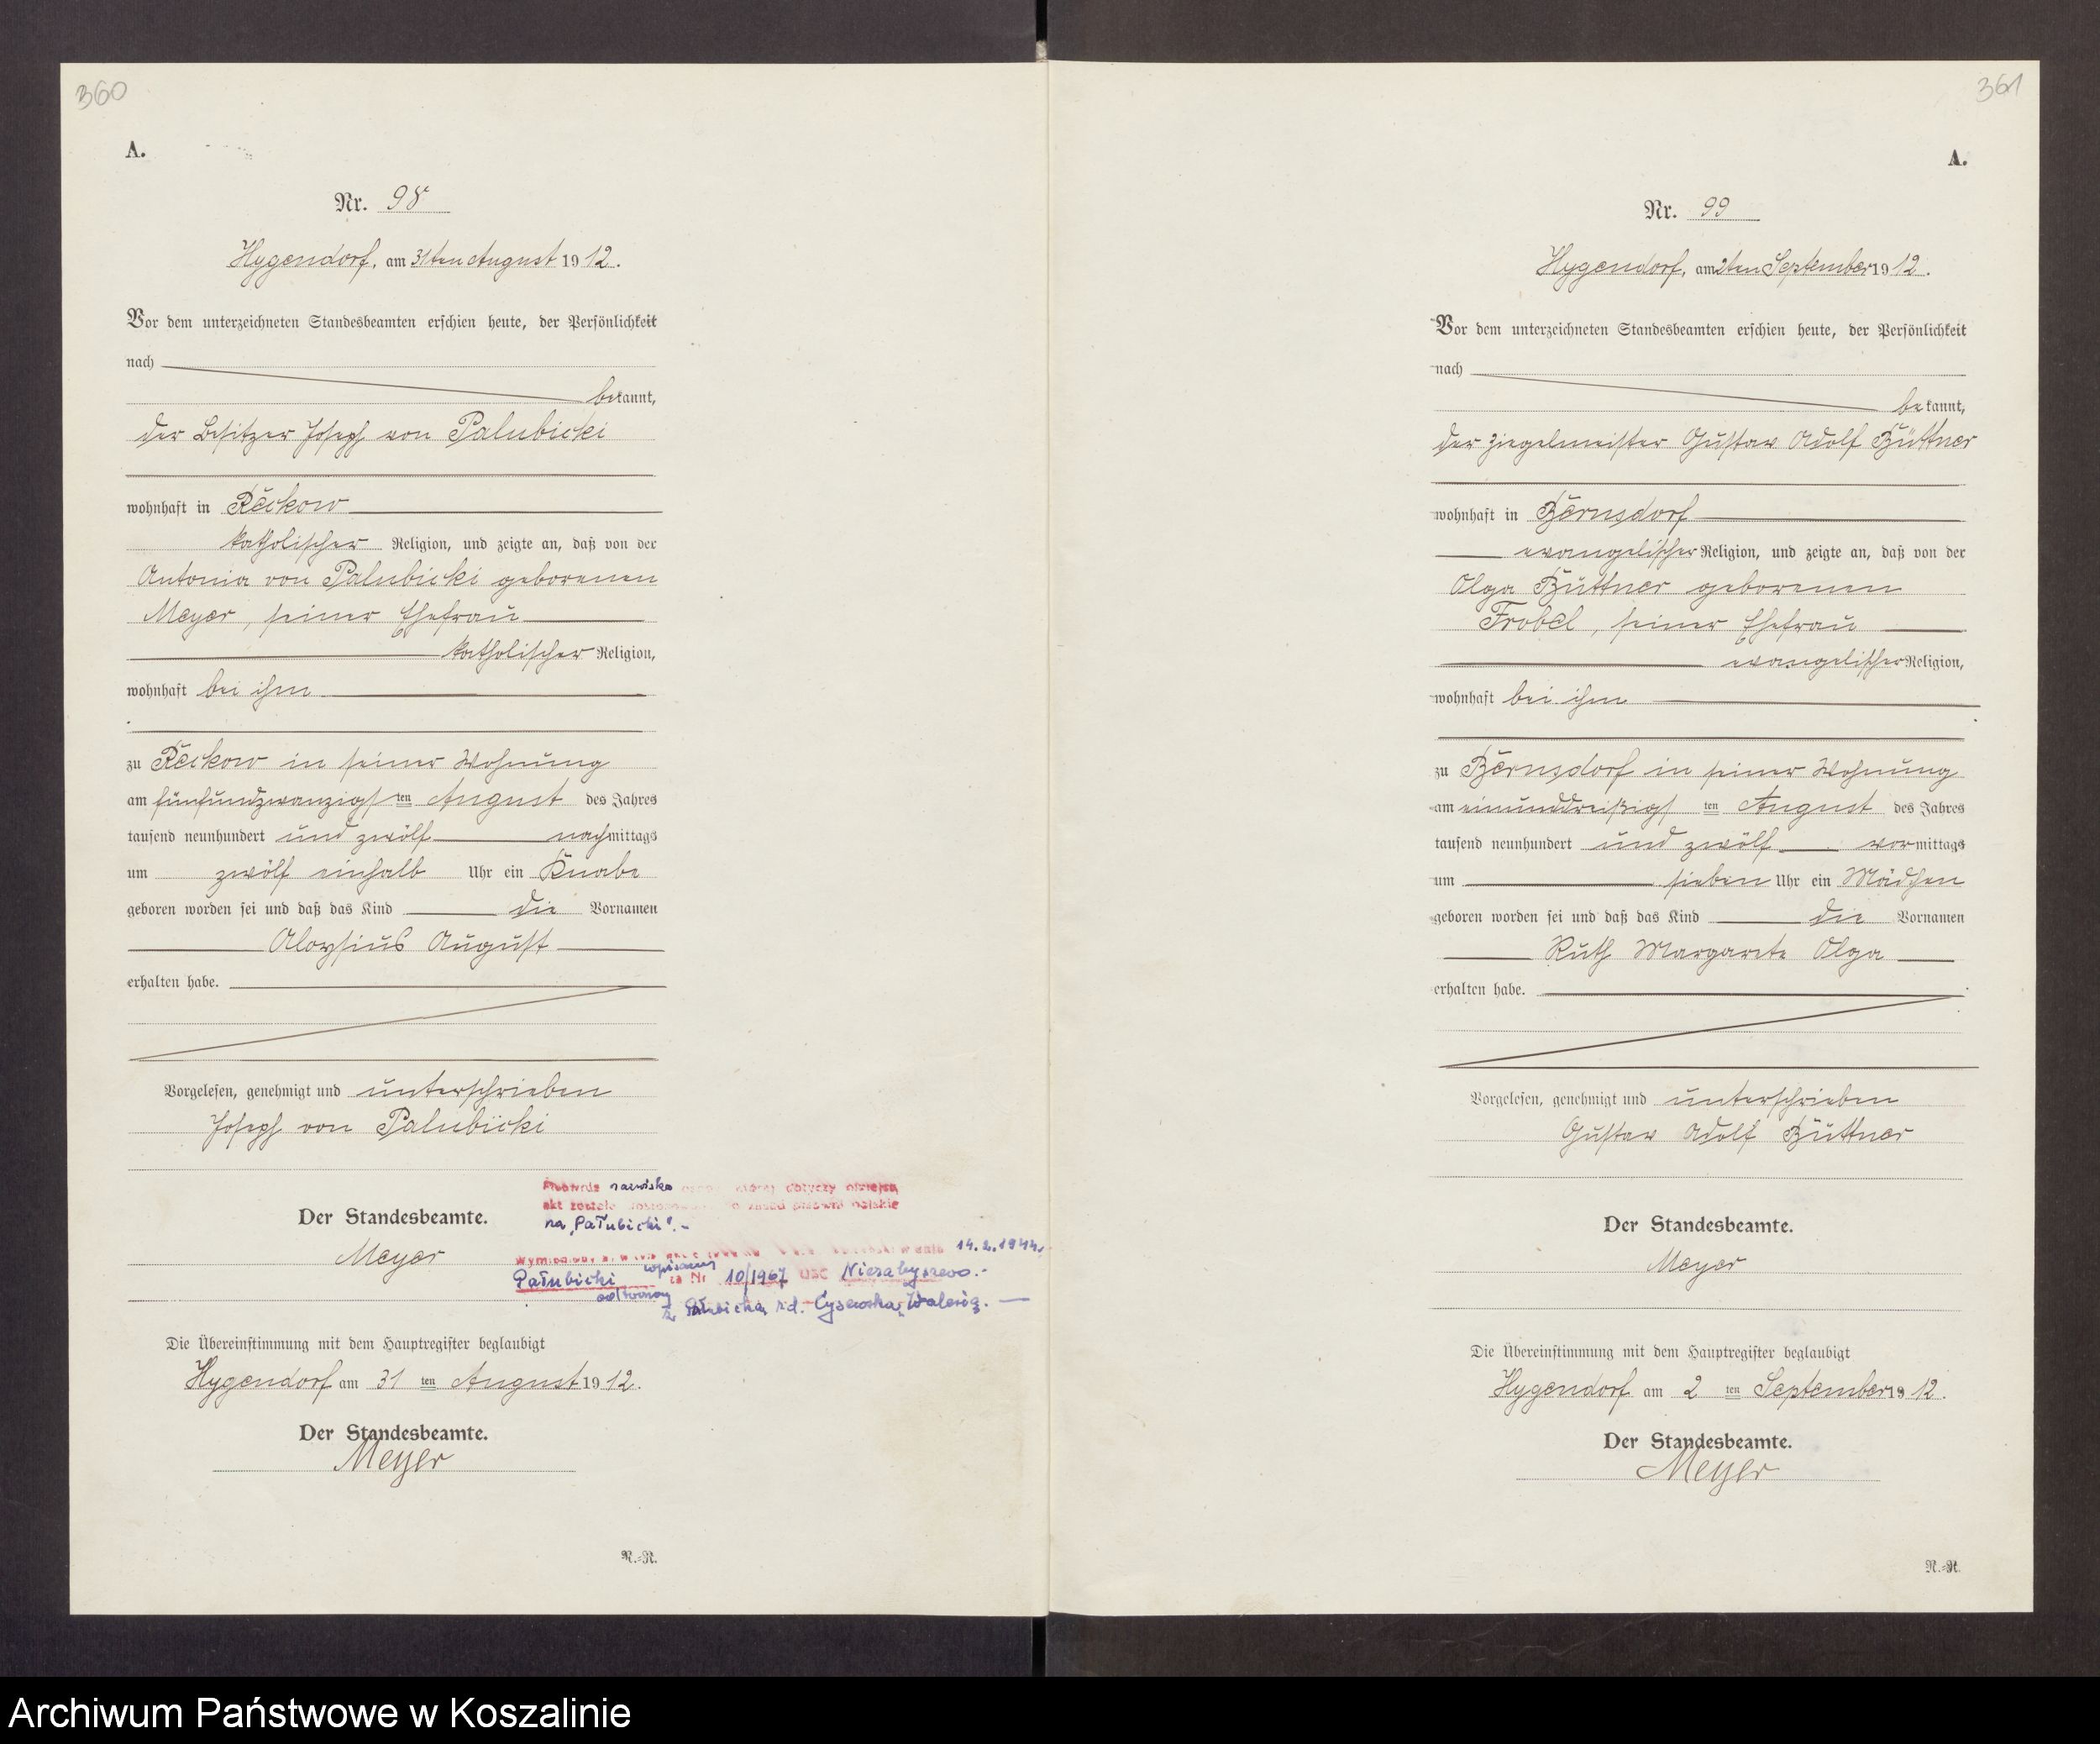 360
A.
Nr. 98
Hygendorf, am 31ten August 1912.
Vor dem unterzeichneten Standesbeamten erschien heute, der Persönlichkeit
nach
bekannt,
der Besitzer Joseph von Palubicki
wohnhaft in Reckow
katholischer Religion, und zeigte an, daß von der
Antonia von Palubicki geborenen
Meyer, seiner Ehefrau
katholischer Religion,
wohnhaft bei ihm
zu Reckow in seiner Wohnung
am fünfundzwanzigsten August des Jahres
tausend neunhundert und zwölf nachmittags
um zwölf einhalb Uhr ein Knabe
geboren worden sei und daß das Kind die Vornamen
Aloysius August
erhalten habe.
Vorgelesen, genehmigt und unterschrieben
Joseph von Palubicki
nazwisko dotyczy niniejszy
akt polskie
na „Pałubicki".-
Der Standesbeamte.
Meyer
14.2.1944
Pałubicki wpisany za Nr 10/1967 USC Niezabyszewo.-
odtworzony
z Cysewska Walerią.
Die Übereinstimmung mit dem Hauptregister beglaubigt
Hygendorf am 31 ten August 1912.
Der Standesbeamte.
Meyer
R.-R.
361
A.
Nr. 99
Hygendorf, am 2ten September 1912.
Vor dem unterzeichneten Standesbeamten erschien heute, der Persönlichkeit
nach
bekannt,
der Ziegelmeister Gustav Adolf Büttner
wohnhaft in Bernsdorf
evangelischer Religion, und zeigte an, daß von der
Olga Büttner geborenen
Frobel, seiner Ehefrau
evangelischer Religion,
wohnhaft bei ihm
zu Bernsdorf in seiner Wohnung
am einunddreißigsten August des Jahres
tausend neunhundert und zwölf vormittags
um sieben Uhr ein Mädchen
geboren worden sei und daß das Kind die Vornamen
Ruth Margarete Olga
erhalten habe.
Vorgelesen, genehmigt und unterschrieben
Gustav Adolf Büttner
Der Standesbeamte.
Meyer
Die Übereinstimmung mit dem Hauptregister beglaubigt
Hygendorf am 2 ten September 1912.
Der Standesbeamte.
Meyer
R.-R.
Archiwum Państwowe w Koszalinie